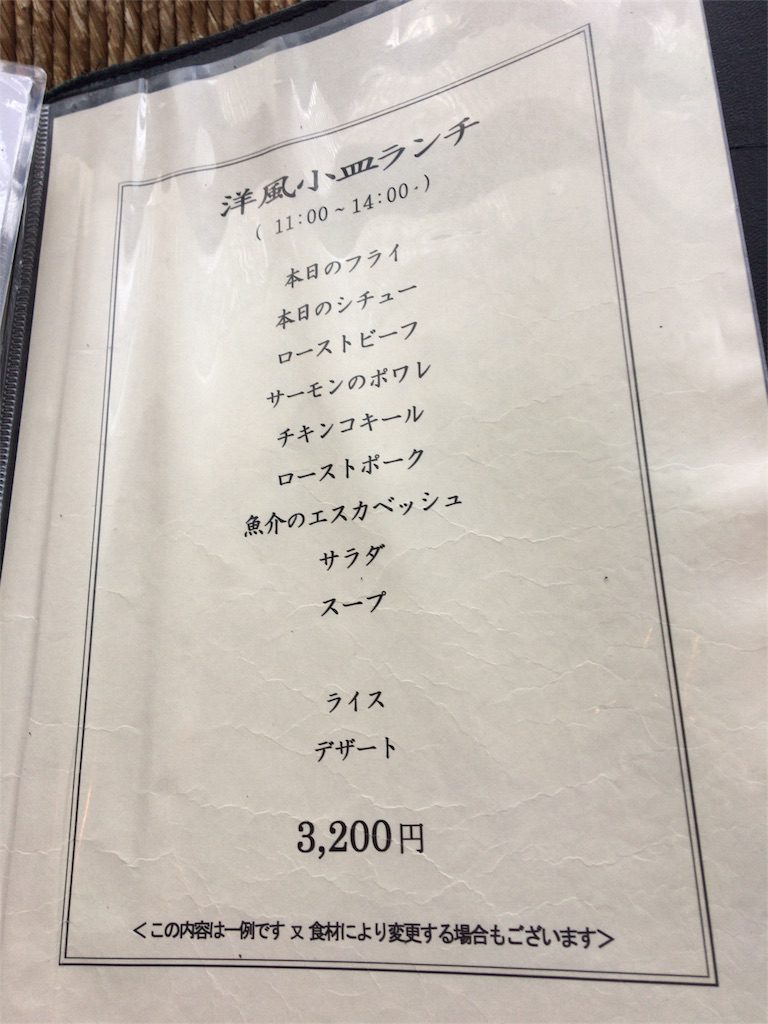 洋風小皿ランチ
( 11:00~14:00.)
本日のフライ
本日のシチュー
ローストビーフ
サーモンのポワレ
チキンコキール
ローストポーク
魚介のエスカベッシュ
サラダ
スープ
ライス
デザート
3,200円
<この内容は一例です 又 食材により変更する場合もございます>